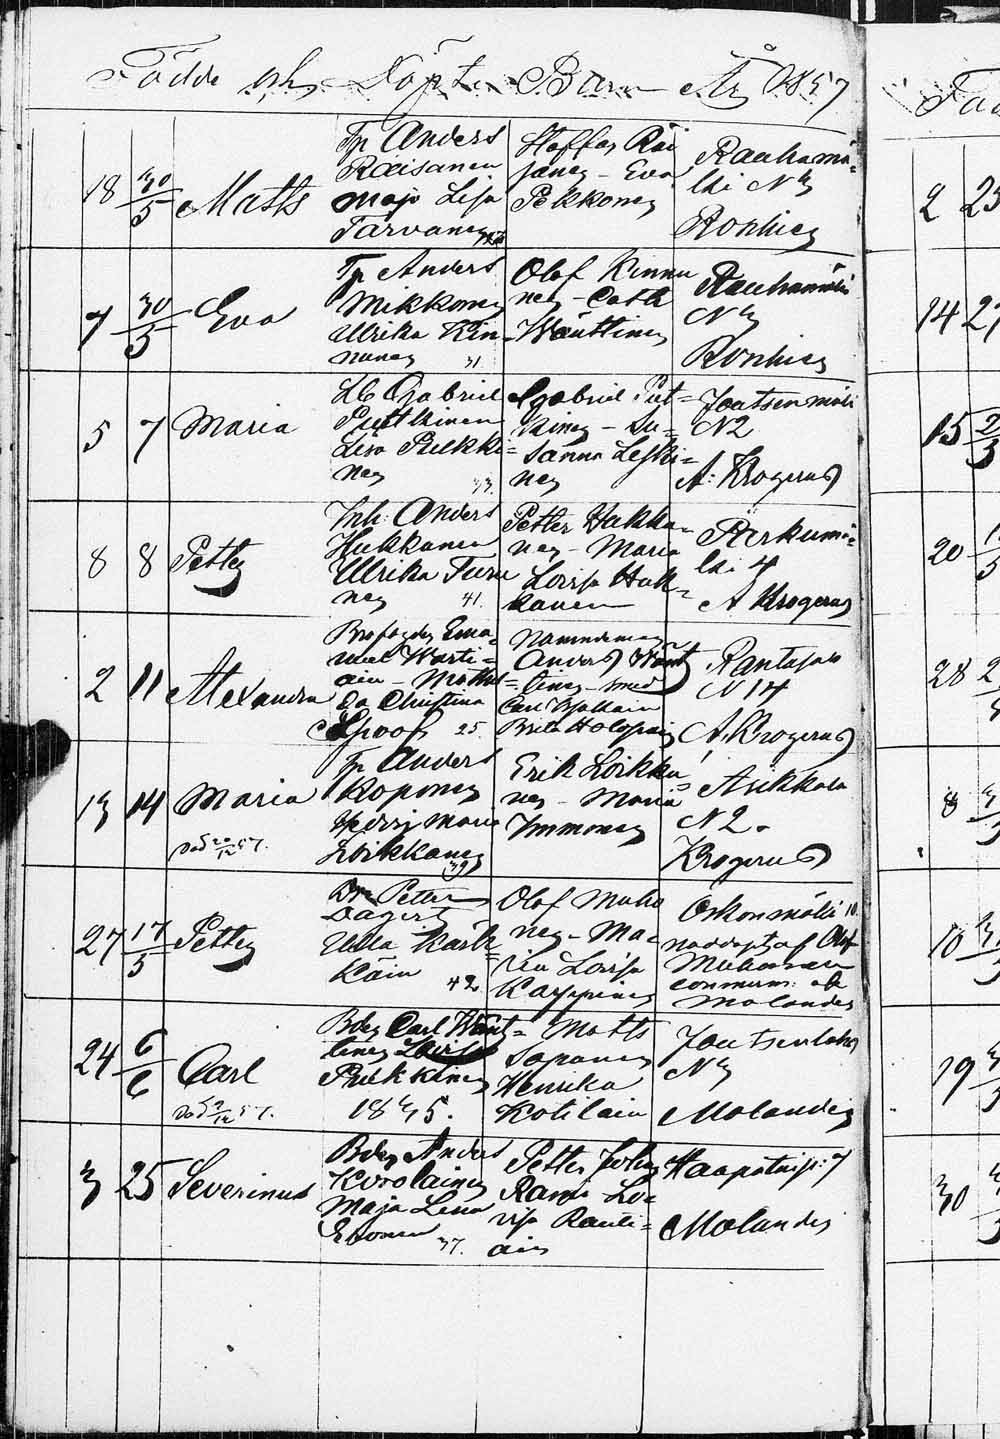 Födde och Döpte Barn År 1857
18 30/5 Matts
Tp Anders
Räisänen
Maja Lisa
Tarvanen
Staffan Räi
sänen - Eva
Pekkonen
Rauhamä=
ki N 3
Ronkien
7 30/5 Eva
Tp Anders
Mikkonen
Ulrika Kin=
nunen 31
Olof Kinnu
nen - Cath
Wänttinen
Rauhamäki
N 3
Ronkien
5 7 Maria
Gabriel
Puttkinen
Lisa Pulkki=
nen 33.
Gabriel Put=
kinen - Su=
sanna Leski=
nen
Joutsenmäki
N2
A. Krogerus
8 8 Petter
Inh. Anders
Hukkanen
Ulrika Turu
nen 41.
Petter Hakka=
nen - Maria
Lovisa Huk=
kanen
lki 4
A Krogerus
2 11 Alexandra
Ema=
nuel Warti=
ain - Mathil=
da Christina
Spoof 25.
Nämndeman
Anders Wänt
tinen - smed
Carl
Brita Holopain
Rantasalo
N 14
A. Krogerus
13 14 Maria
död 20/12 57.
Tp Anders
Koponen
Hedvig Maria
Loikkanen
39
Erik Loikka
nen - Maria
Immonen
Asikkala
N 2.
Krogerus
27 17/5 Petter
Petter
Dagert
Ulla Kärk=
käin 42
Olof Muho
nen - Ma=
ria Lovisa
Karppinen
Oskonmäki 10.
nöddöpt af Olof
Muhonen
conmirm: af
Molander
24 6/6 Carl
död 9/12 57.
Bdn Carl Wänt=
tinen Lovisa
Pulkkinen
1835.
Matts
Soponen
Henrika
Kotilain
Joutsenlaks
N 3
Molander
3 25 Severinus
Bdn Anders
Karolainen
Maja Lena
Eronen 37.
Petter Johan
Ranta Lo=
visa Rauti=
ain
Haapatnip: 7
Molander
2 25
14 27
15
20
28
8
10
19
30